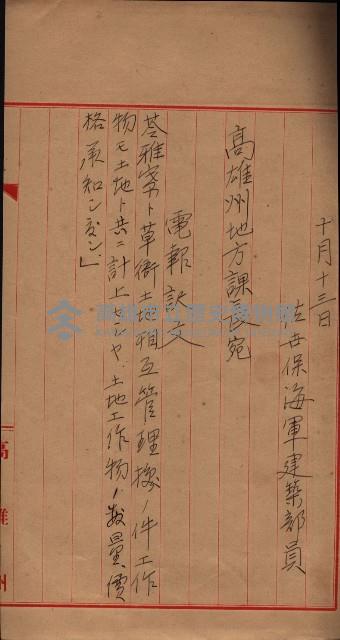 十月十三日
佐世保海軍建築部員
高雄州地方課長宛
電報訳文
苓雅寮ト草衙土地相互管理換ノ件工作
物モ土地ト共ニ計上セシヤ、土地工作物ノ数量價
格承知シ度シ」
高雄州